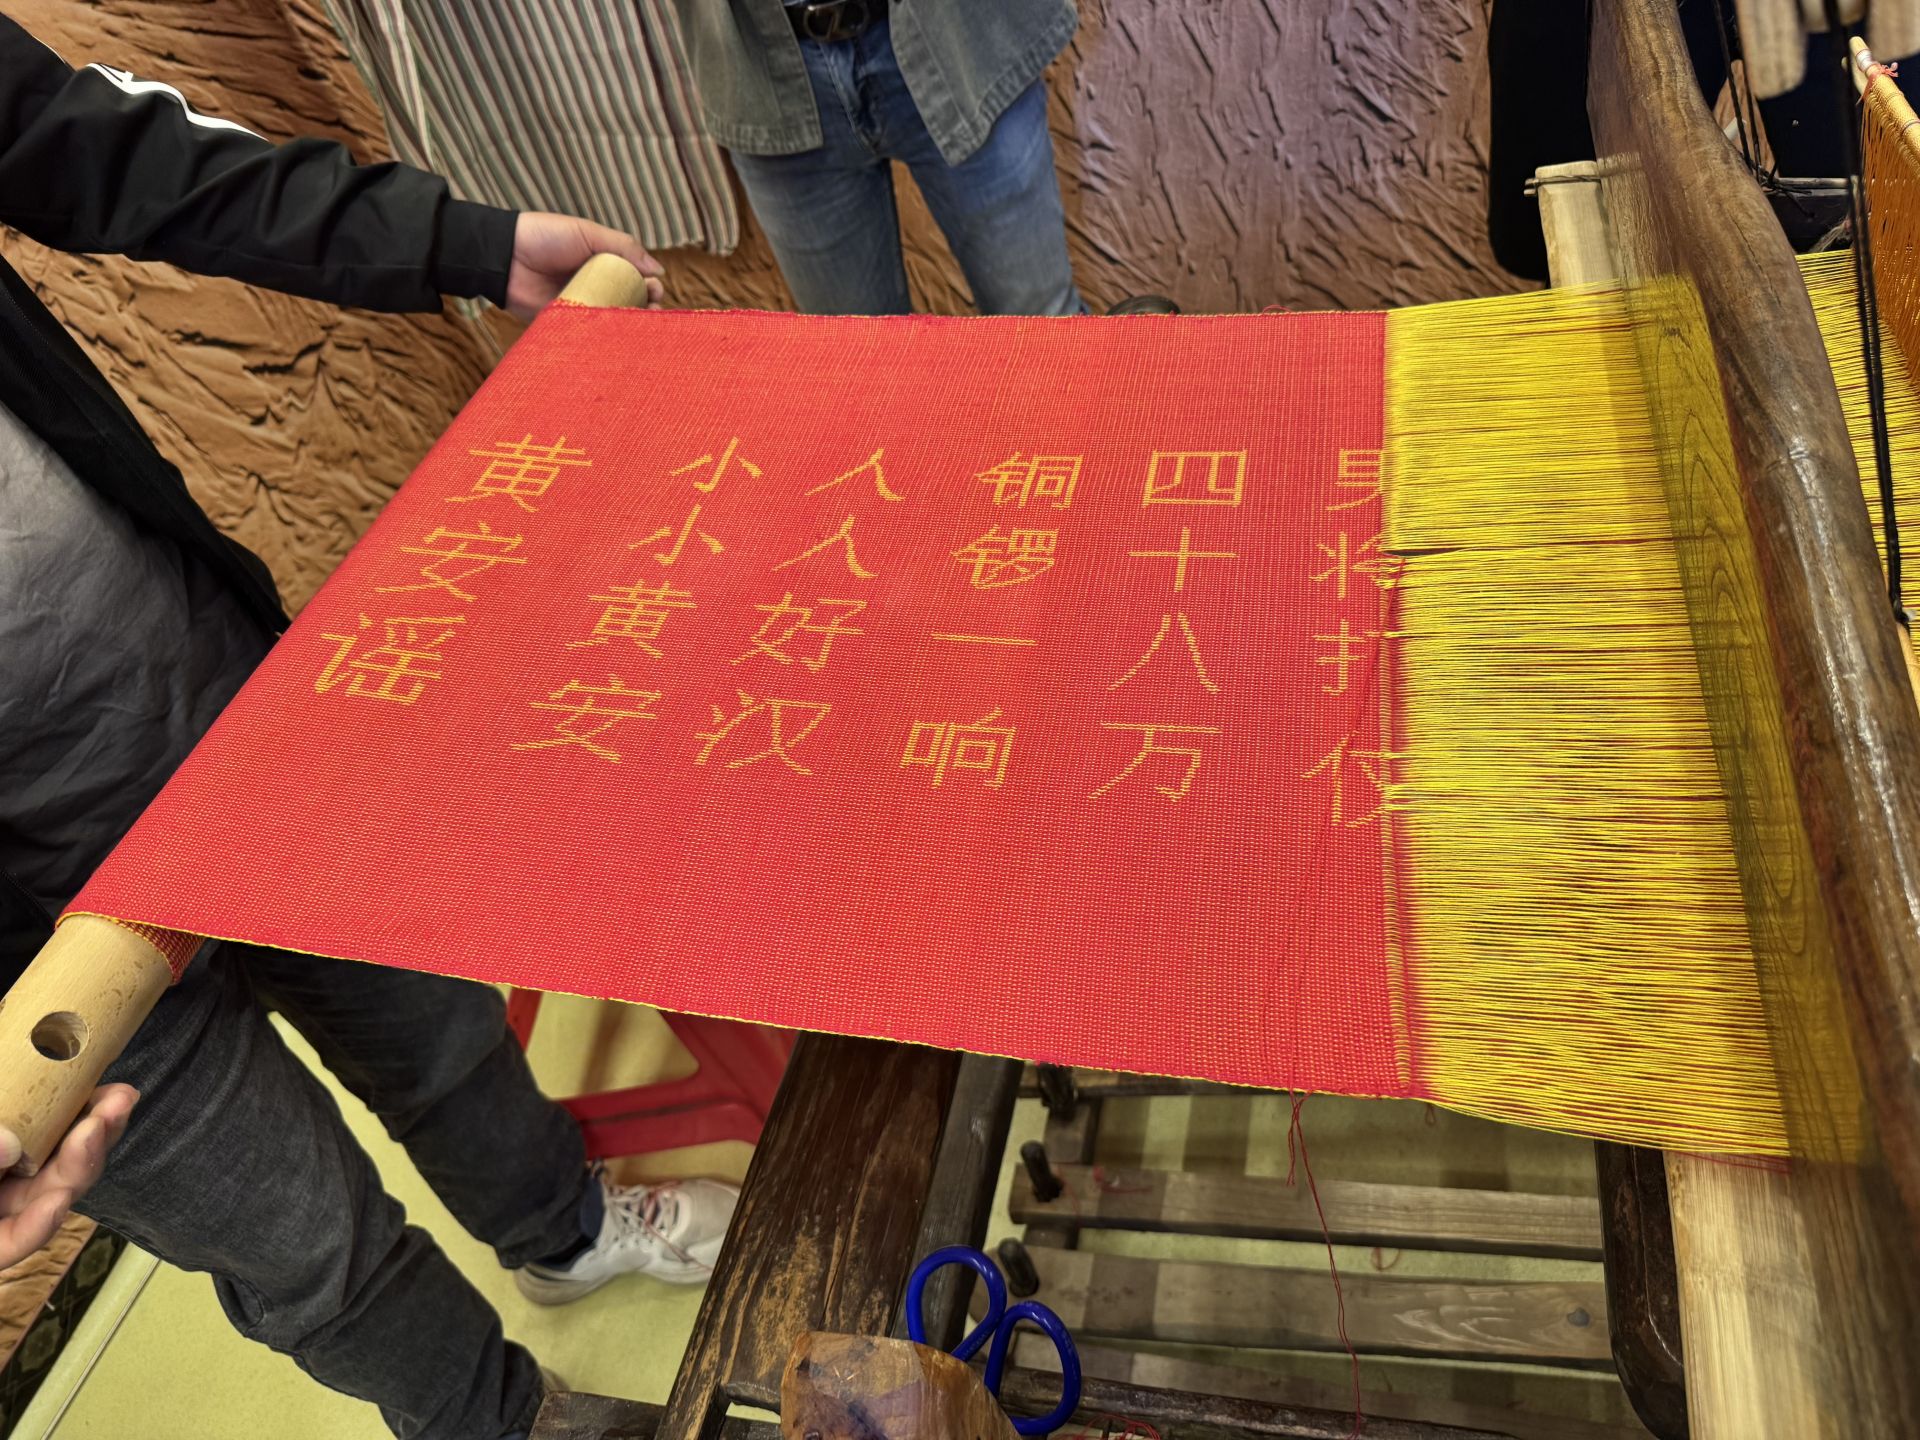 黄安谣
小小黄安
人人好汉
铜锣一响
四十八万